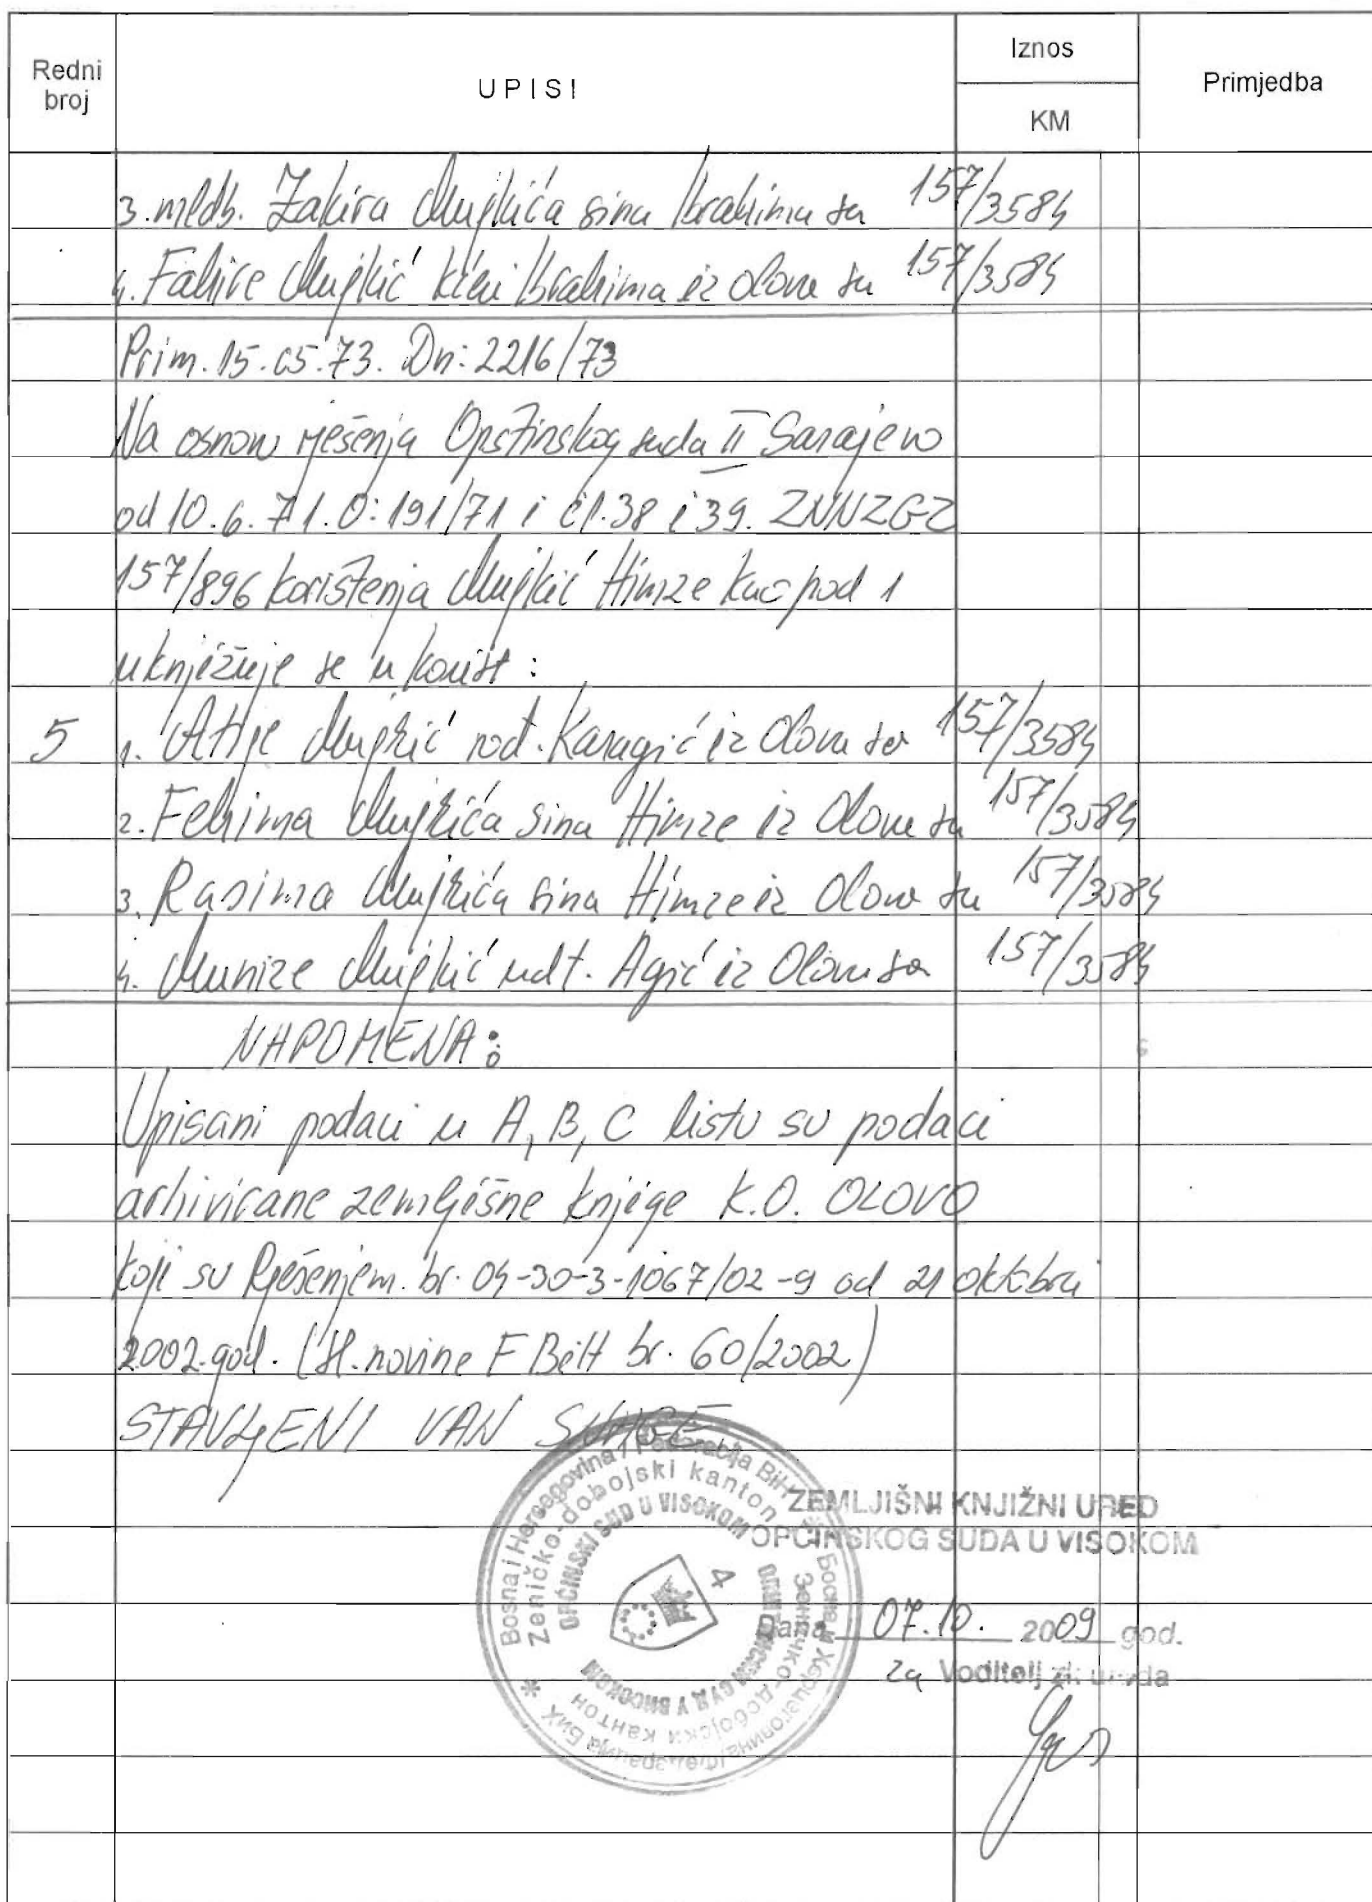 Redni broj
UPISI
Iznos
KM
Primjedba
3. mldb. Zakira Mujkića sina Ibrahima sa 157/3584
4. Fahire Mujkić kćeri Ibrahima iz Olova sa 157/3584
Prim. 15.05.73. Dn: 2216/73
Na osnovu rješenja Opštinskog suda II Sarajevo
od 10.6.71. O: 191/71 i čl. 38 i 39. ZNNZGZ
157/896 korištenja Mujkić Himze kao pod 1
uknjižuje se u korist:
5 1. Atije Mujkić rođ. Karagić iz Olova sa 157/3584
2. Fehima Mujkića sina Himze iz Olova sa 157/3584
3. Rasima Mujkića sina Himze iz Olova sa 157/3584
4. Munize Mujkić udt. Agić iz Olova sa 157/3584
NAPOMENA:
Upisani podaci u A, B, C listu su podaci
arhivirane zemljišne knjige K.O. OLOVO
koji su Rješenjem. br. 04-30-3-1067/02-9 od 21 oktobra
2002.god. (Sl. novine F BiH br. 60/2002)
STAVLJENI VAN SNAGE
ZEMLJIŠNI KNJIŽNI URED
OPĆINSKOG SUDA U VISOKOM
Dana 07.10. 2009 god.
Za Voditelj zk ureda
Bosna i Hercegovina / Federacija BiH
Zeničko-dobojski kanton
OPĆINSKI SUD U VISOKOM
4
Босна и Херцеговина / Федерација БиХ
Зеничко-добојски кантон
ОПЋИНСКИ СУД У ВИСОКОМ